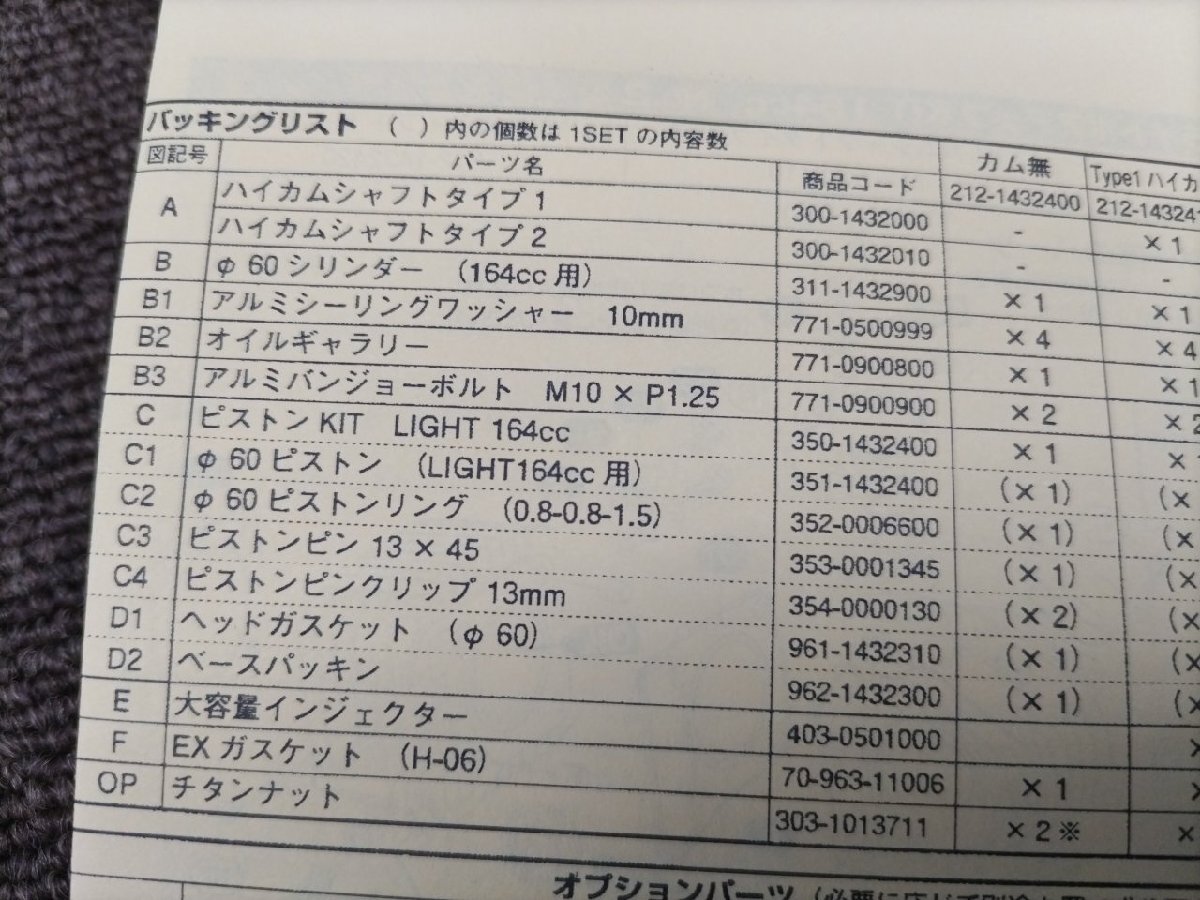 パッキングリスト ( ) 内の個数は 1SET の内容数
図記号 パーツ名 商品コード カム無 Type1 ハイカ
212-1432400 212-14324
A ハイカムシャフトタイプ 1 300-1432000 - × 1
ハイカムシャフトタイプ 2 300-1432010 - -
B φ 60 シリンダー (164cc 用) 311-1432900 × 1 × 1
B1 アルミシーリングワッシャー 10mm 771-0500999 × 4 × 4
B2 オイルギャラリー 771-0900800 × 1 × 1
B3 アルミバンジョーボルト M10 × P1.25 771-0900900 × 2 × 2
C ピストン KIT LIGHT 164cc 350-1432400 × 1 × 1
C1 φ 60 ピストン (LIGHT164cc 用) 351-1432400 (× 1) (×
C2 φ 60 ピストンリング (0.8-0.8-1.5) 352-0006600 (× 1) (×
C3 ピストンピン 13 × 45 353-0001345 (× 1) (×
C4 ピストンピンクリップ 13mm 354-0000130 (× 2) (×
D1 ヘッドガスケット (φ 60) 961-1432310 (× 1) (×
D2 ベースパッキン 962-1432300 (× 1) (×
E 大容量インジェクター 403-0501000 ×
F EX ガスケット (H-06) 70-963-11006 × 1 ×
OP チタンナット 303-1013711 × 2 ※ ×
オプションパーツ